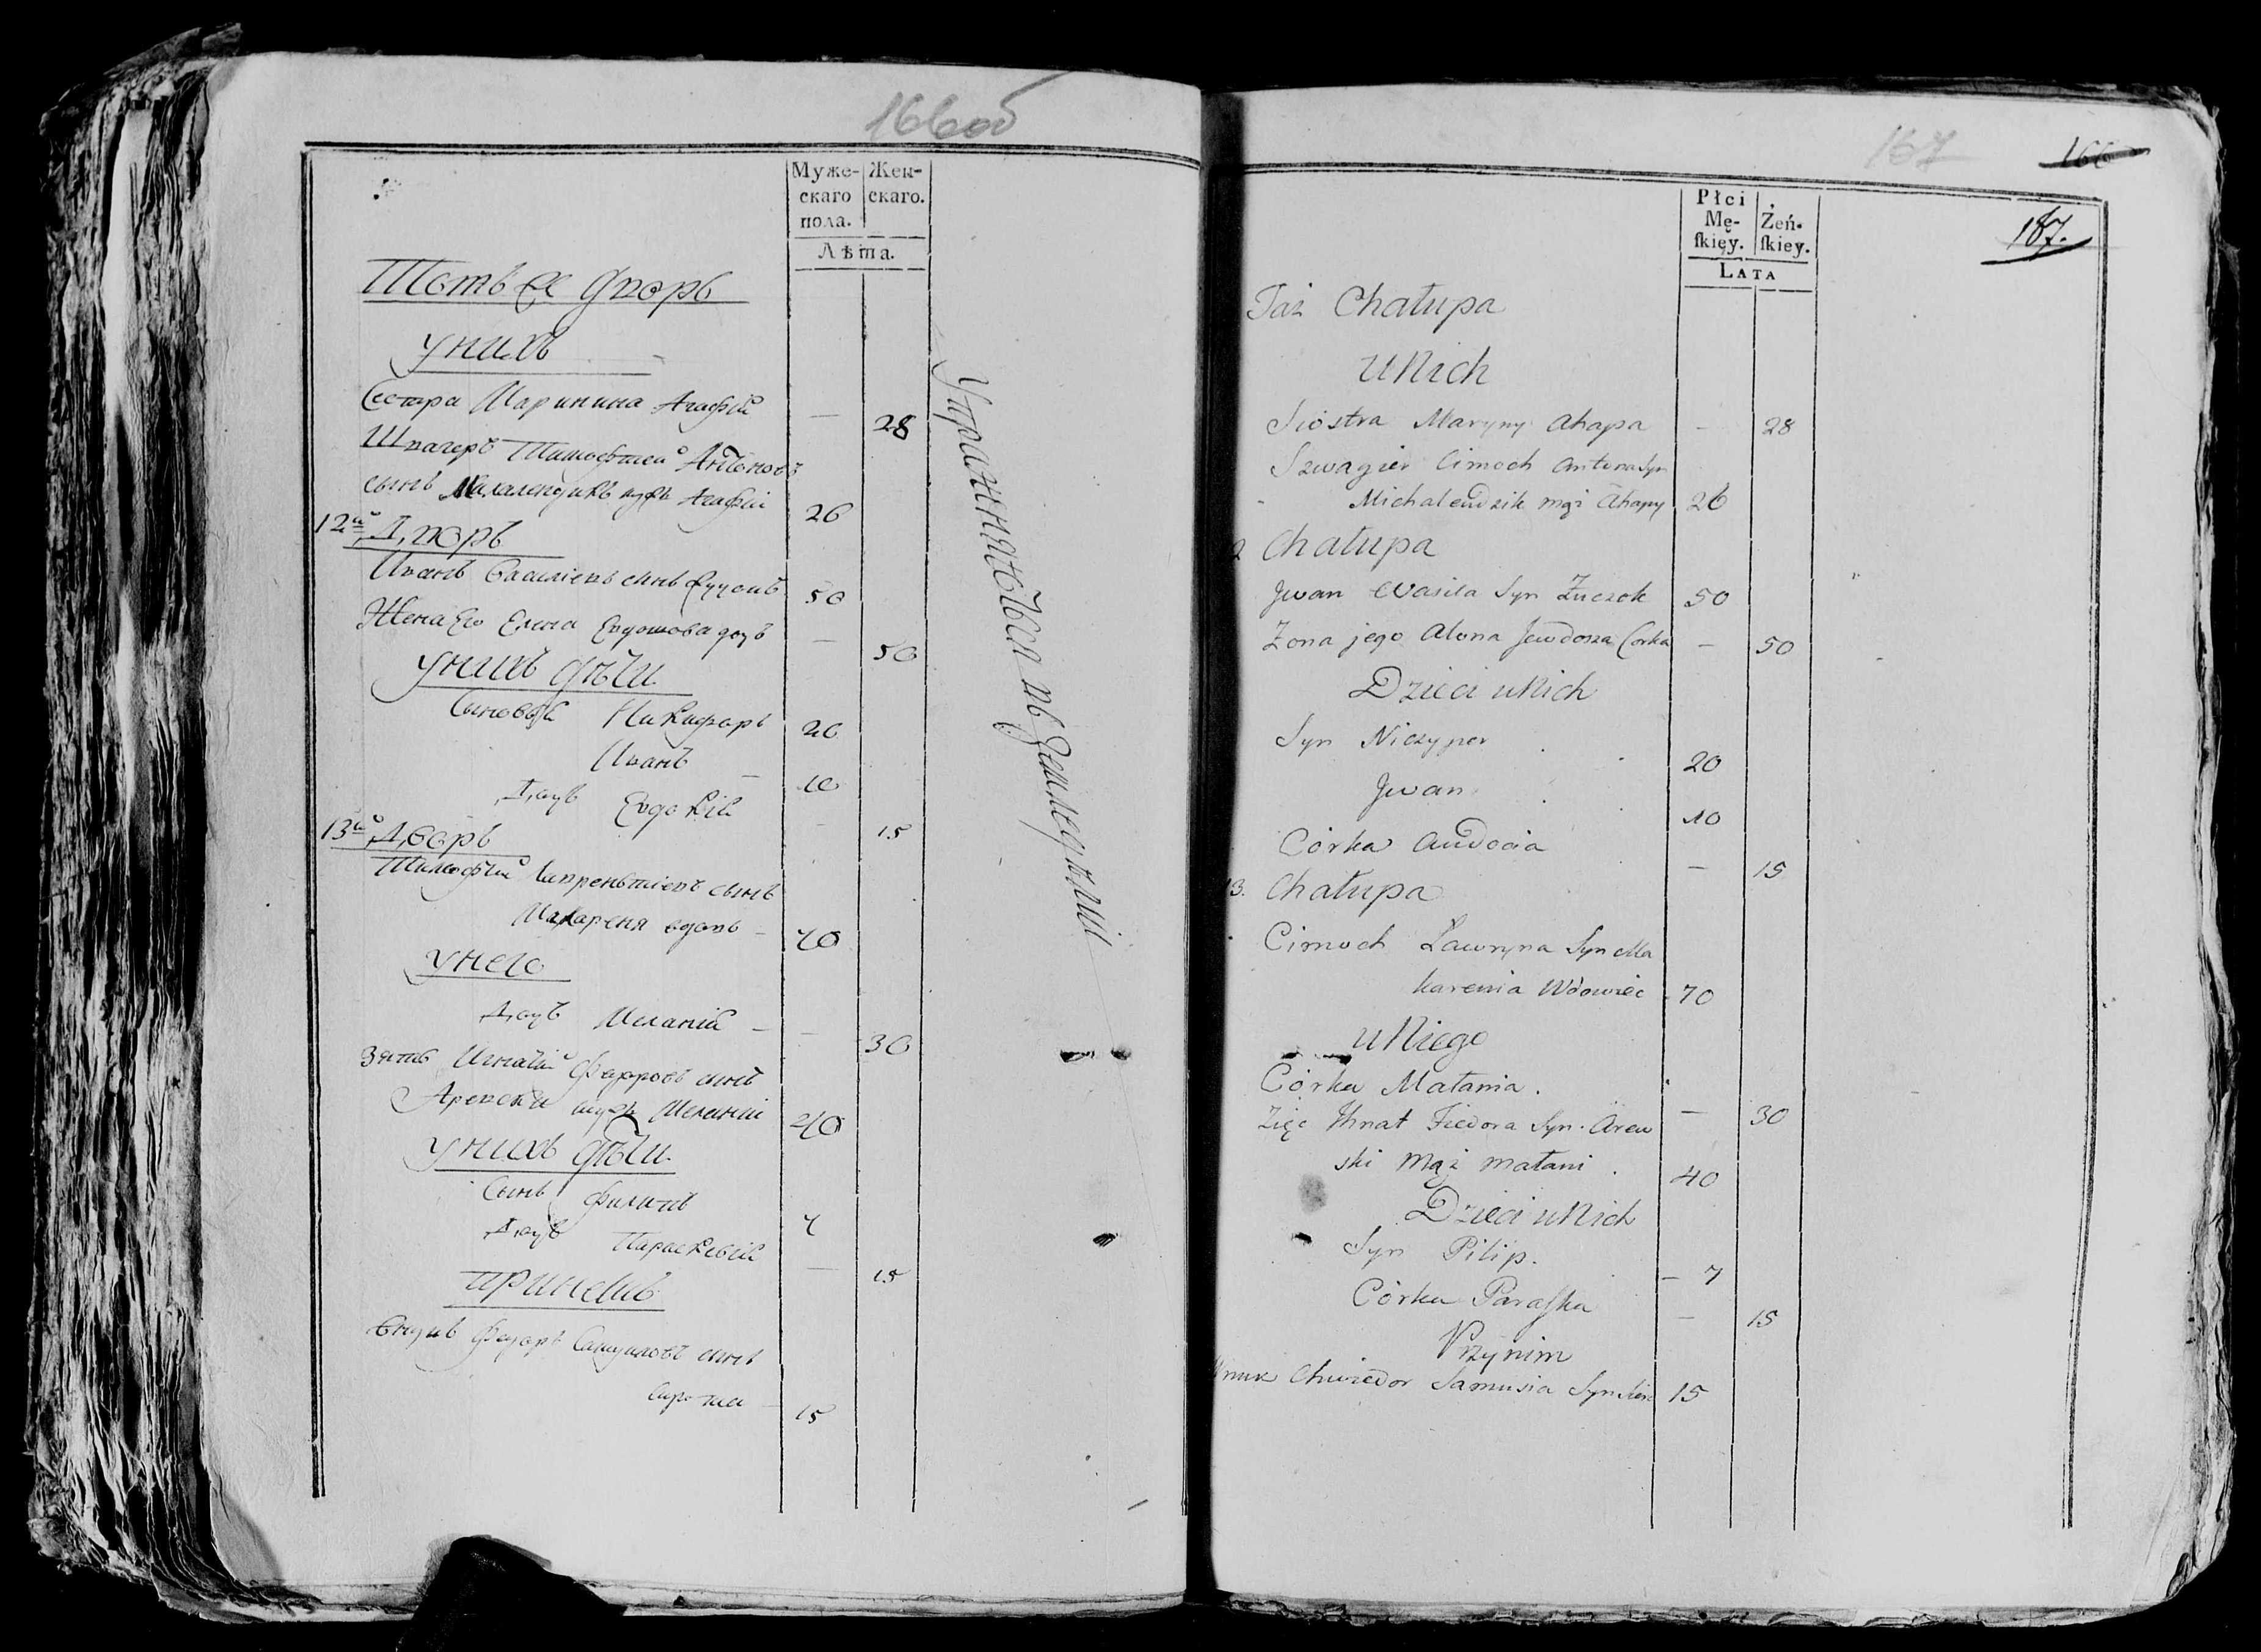 166об
Муже-
скаго
пола.
Жен-
скаго.
Лѣта.
Тотъ же дворъ
у нихъ
Сестра Маринина Агафiя — 28
Швагеръ Тимофтей Антоновъ
сынъ Михалендзикъ мужъ Агафiи 26
12й Дворъ
Иванъ Василiевъ сынъ 50
Жена Его Елена дочь — 50
у нихъ дѣти
Сыновья Никифоръ 20
Иванъ — 10
Дочь Евдокiя — 15
13й Дворъ
Тимофей Лаврентiевъ сынъ
Макареня вдовъ — 70
у него
Дочь Меланiя — 30
Зять Игнатiй Федоровъ сынъ
Аревски мужъ Меланiи 40
у нихъ дѣти
Сынъ Филипъ 7
Дочь Параскевiя — 15
при немъ
Внукъ Федоръ Самуиловъ сынъ
сирота — 15
Упражняются въ земледѣлiи
167
166
167.
Płci
Mę-
ſkięy.
Żeń-
ſkiey.
LATA
Taż Chałupa
u Nich
Siostra Maryny Ahapa — 28
Szwagier Cimoch Antona Syn
Michalendzik mąż Ahapy 26
Chałupa
Jwan Wasila Syn Żuczok 50
Zona jego Alona Jewdosza Corka — 50
Dzieci u Nich
Syn Niczyper 20
Jwan 10
Córka Audocia — 15
13. Chałupa
Cimoch Ławryna Syn Ma
karenia Wdowiec 70
u Niego
Córka Małania. — 30
Zięć Ihnat Fiedora Syn Arew
ski Mąż Małani. 40
Dzieci u Nich
Syn Pilip. — 7
Córka Paraſka — 15
Przy nim
Wnuk Chwiedor Samusia Syn 15